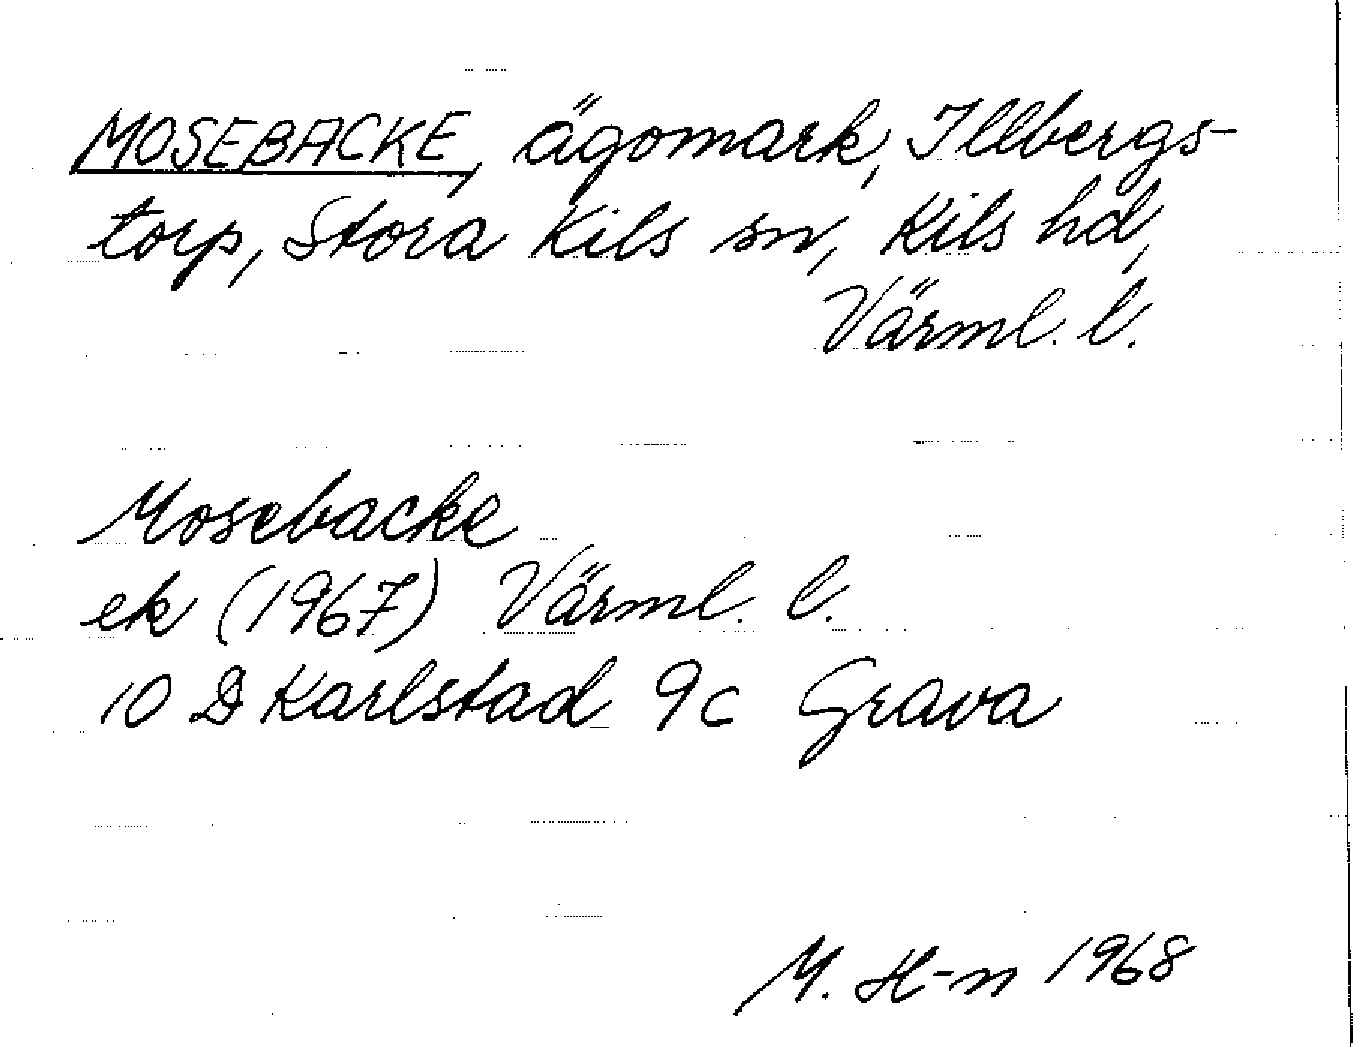 MOSEBACKE, ägomark, Illbergs-
torp, Stora Kils sn, Kils hd,
Värml. l.
Mosebacke
ek (1967) Värml. l.
10 D Karlstad 9c Grava
M. H-n 1968